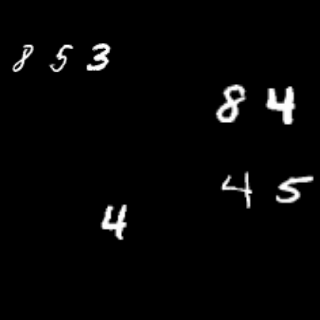 8 5 3
8 4
4 5
4